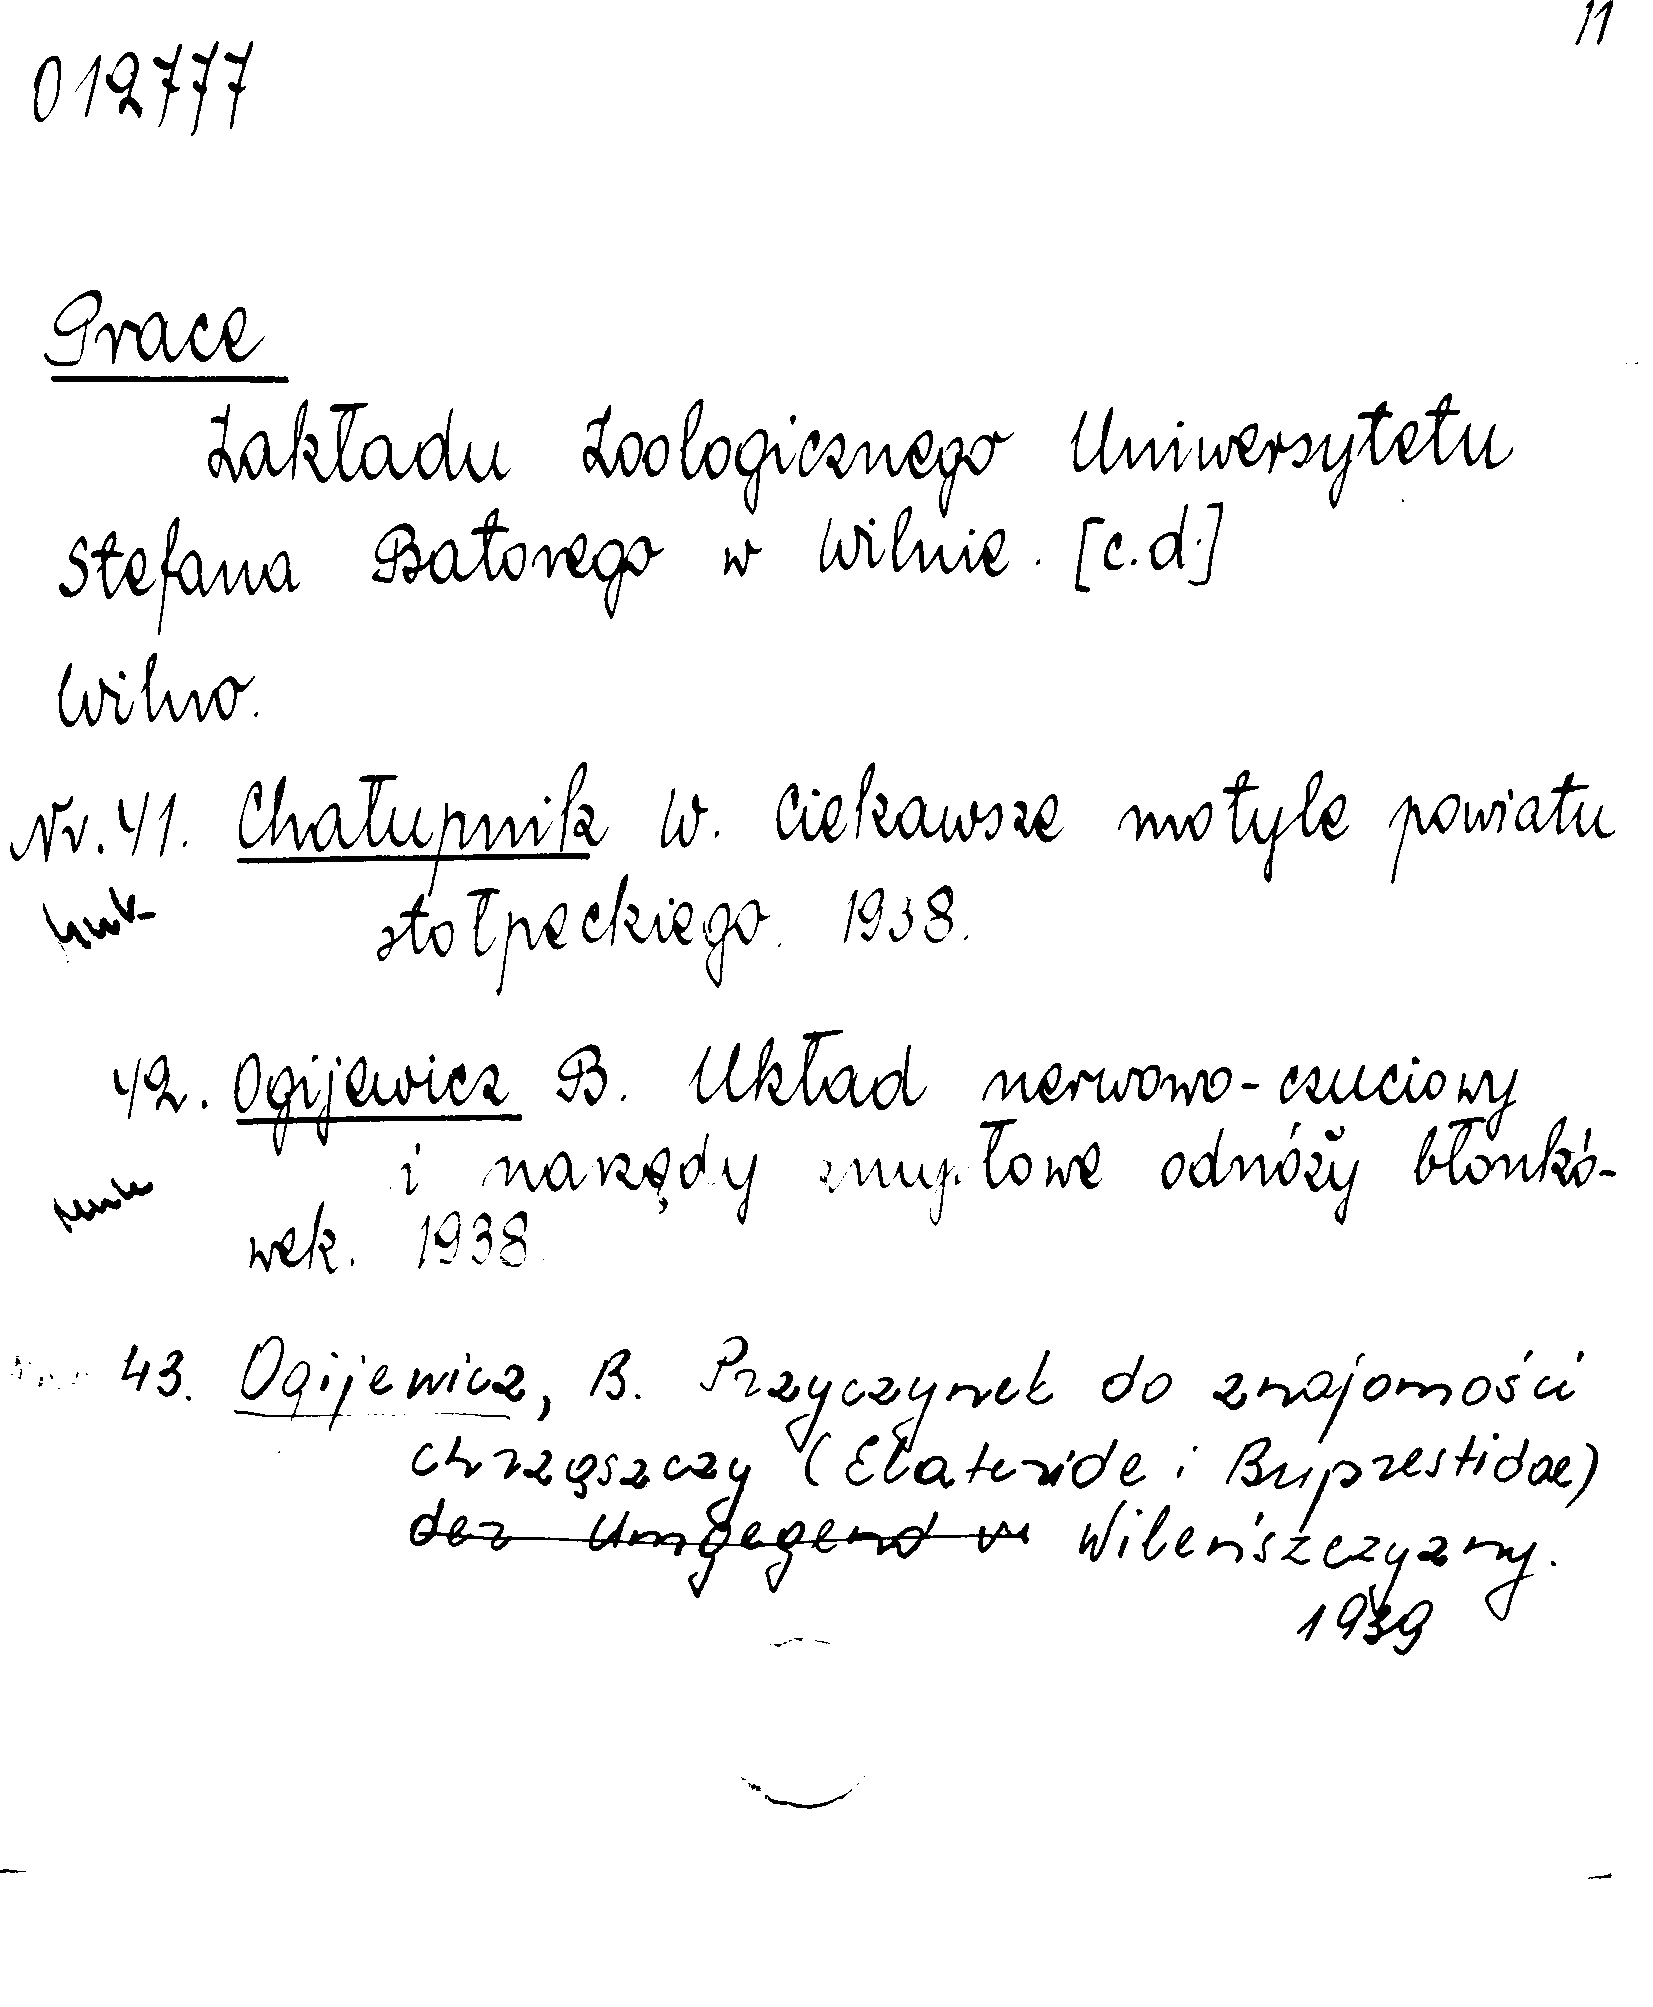 11
012777
Prace
Zakładu Zoologicznego Uniwersytetu
Stefana Batorego w Wilnie. [c.d.]
Wilno.
Nr. 41. Chałupnik W. Ciekawsze motyle powiatu
stołpeckiego. 1938.
42. Ogijewicz B. Układ nerwowo-czuciowy
i narzędy zmysłowe odnóży błonkó-
wek. 1938.
43. Ogijewicz, B. Przyczynek do znajomości
chrząszczy (Elateride i Buprestidae)
der Umgegend v Wileńszczyzny.
1939